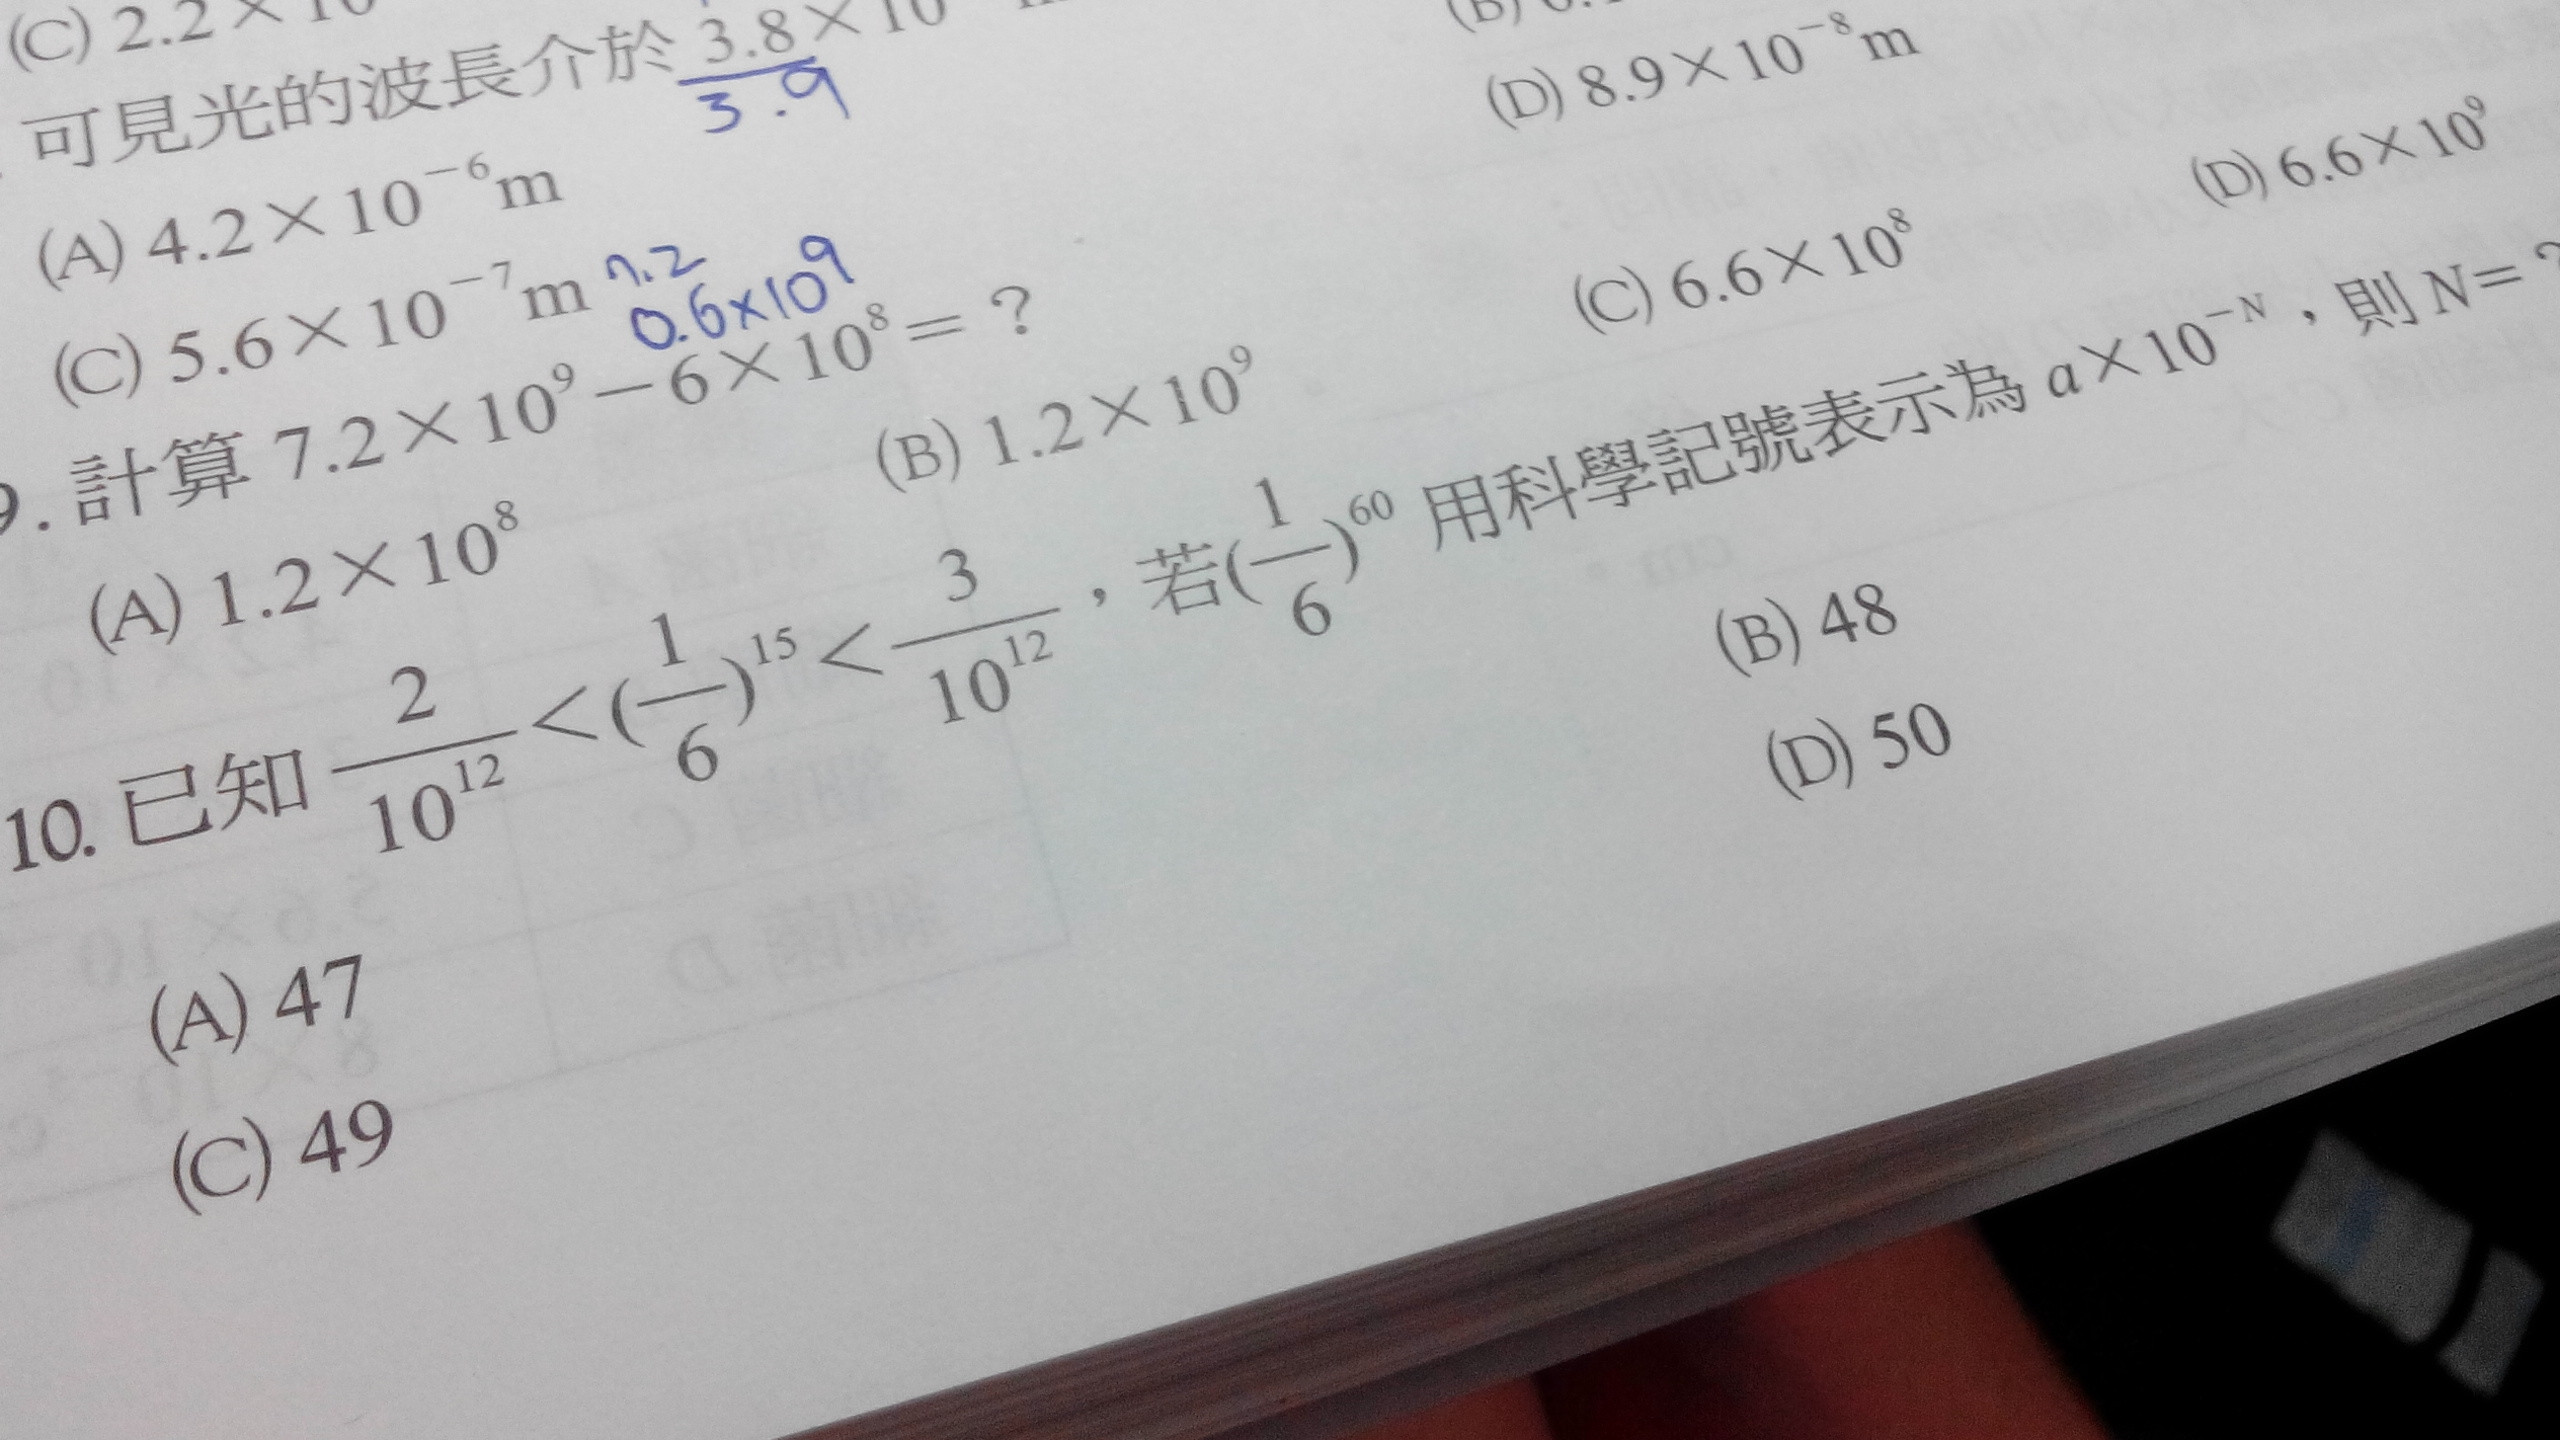 (C) 2.2×10
可見光的波長介於 3.8×10
3.9
(A) 4.2×10⁻⁶m
(D) 8.9×10⁻⁸m
(C) 5.6×10⁻⁷m
7.2
0.6×10⁹
9. 計算 7.2×10⁹－6×10⁸＝？
(A) 1.2×10⁸ (B) 1.2×10⁹ (C) 6.6×10⁸ (D) 6.6×10⁹
10. 已知 2/10¹² < (1/6)¹⁵ < 3/10¹²，若(1/6)⁶⁰ 用科學記號表示為 a×10⁻ᴺ，則 N=？
(A) 47 (B) 48
(C) 49 (D) 50